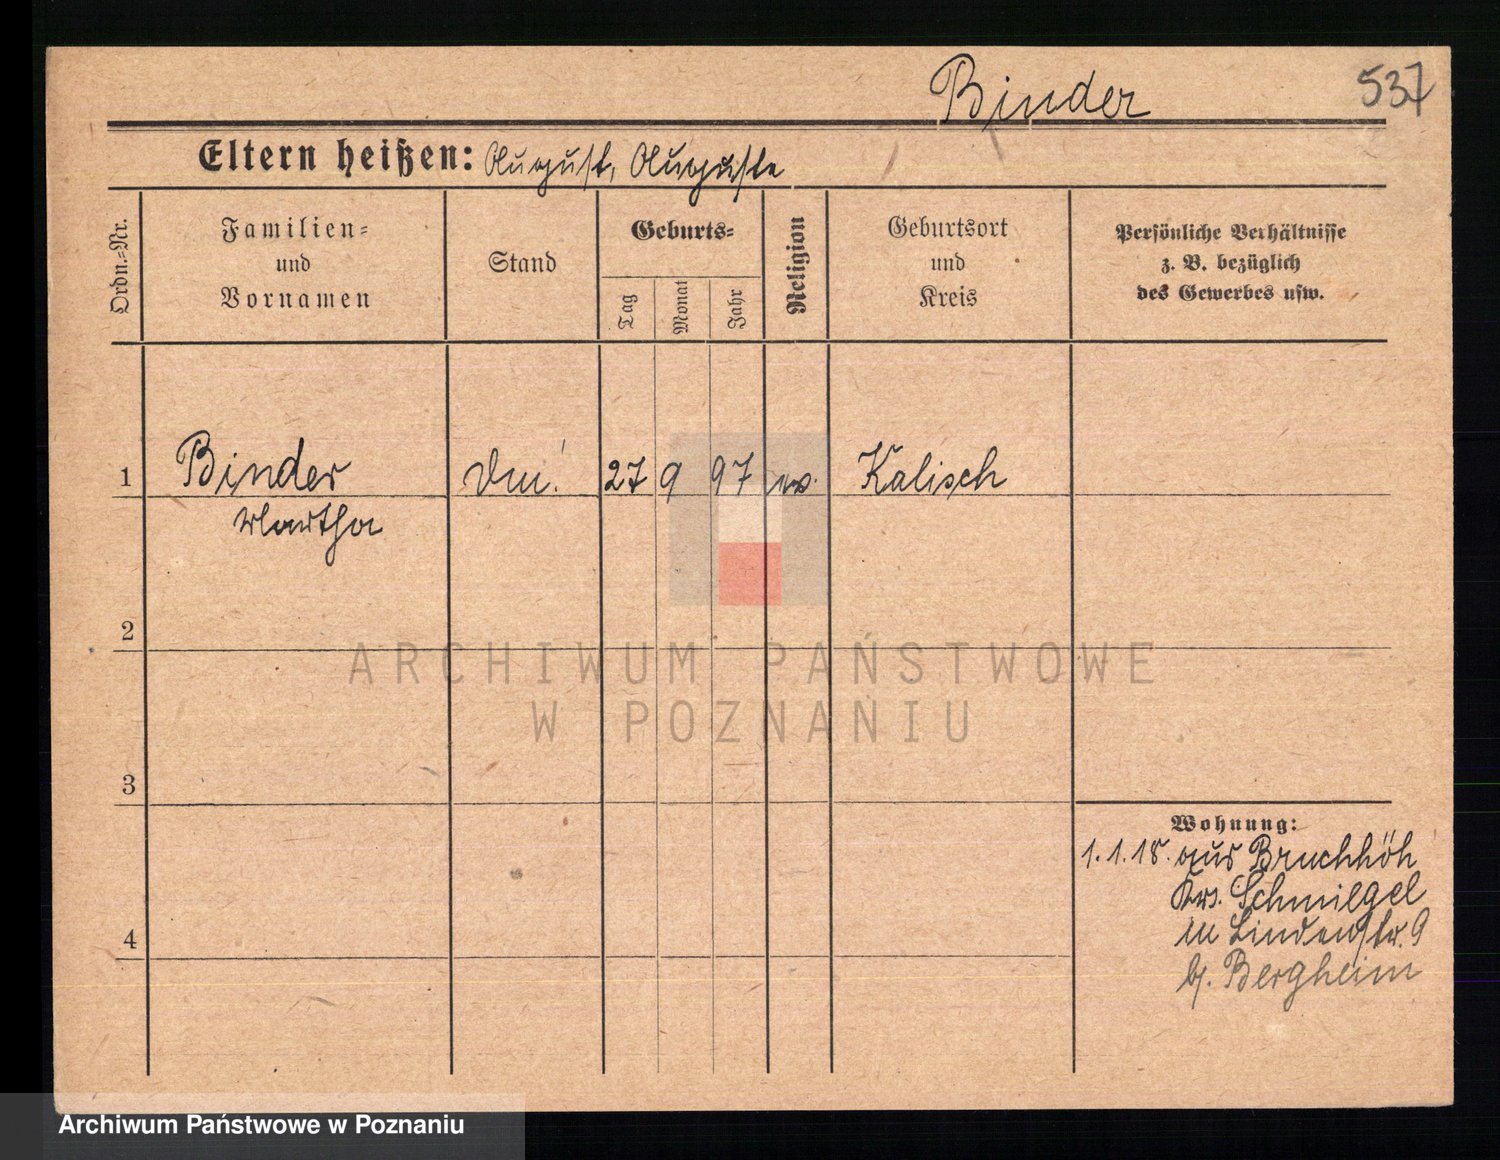 Binder 537
Eltern heißen: August, Auguste
Ordn.-Nr.
Familien-
und
Vornamen
Stand
Geburts-
Tag
Monat
Jahr
Religion
Geburtsort
und
Kreis
Persönliche Verhältnisse
z. B. bezüglich
des Gewerbes usw.
1 Binder 27 9 97 ev. Kalisch
Martha
2
3
4
Wohnung:
1.1.18. aus Bruchhöh
Krs. Schmilgel
in Lindenstr. 9
b/. Bergheim
ARCHIWUM PAŃSTWOWE
W POZNANIU
Archiwum Państwowe w Poznaniu